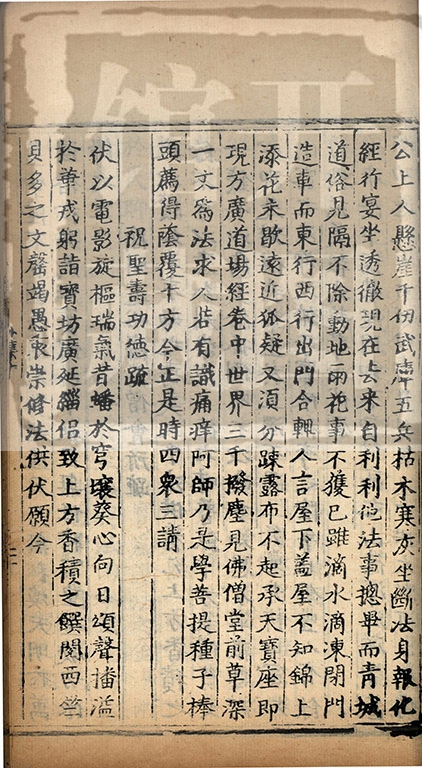 公上人懸崖千仞武庫五兵枯木寒灰坐斷法身報化
經行宴坐透徹現在去來自利利他法事揔畢而青城
道俗見隔不除動地雨花事不獲已雖滴水滴凍閉門
造車而東行西行出門合轍人言屋下蓋屋不知錦上
添花未歇遠近狐疑又湏分踈露布不起承天寶座即
現方廣道場經卷中世界三千撥塵見佛僧堂前草深
一丈爲法求人若有識痛痒阿師乃是學菩提種子棒
頭薦得蔭覆十方今正是時四衆三請
祝聖壽功德疏
伏以電影旋樞瑞氣昔蟠於穹壤葵心向日頌聲播溢
於華戎躬詣寶坊廣延緇侣致上方香積之饌閱西竺
貝多之文罄竭愚衷崇修法供伏願今